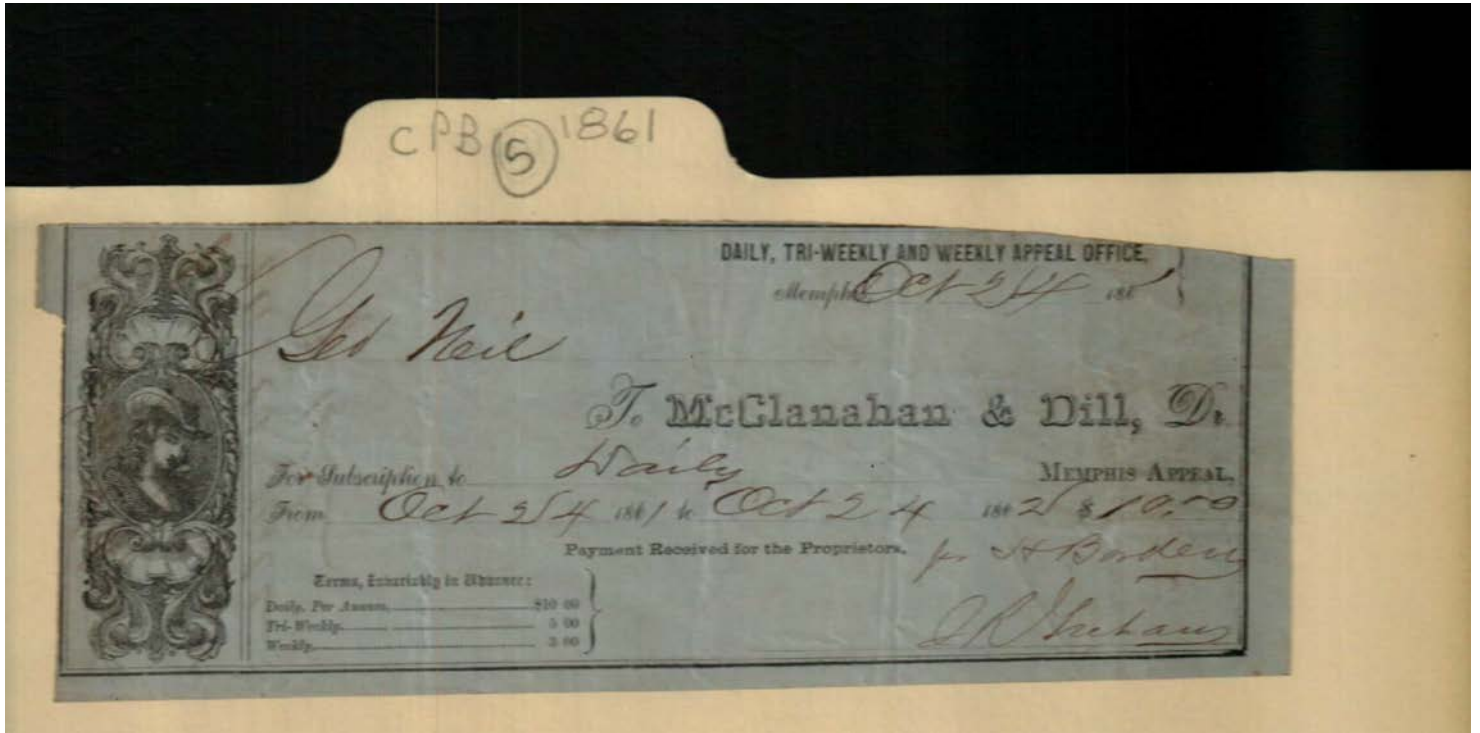 CPB 5 1861
DAILY, TRI-WEEKLY AND WEEKLY APPEAL OFFICE,
Memphis Oct 24 1861
Geo Neil
To McClanahan & Dill, Dr.
For Subscription to Daily MEMPHIS APPEAL,
From Oct 24 1861 to Oct 24 1862 $10.00
Payment Received for the Proprietors,
Terms, Invariably in Advance:
Daily, Per Annum, $10 00
Tri-Weekly 5 00
Weekly 3 00